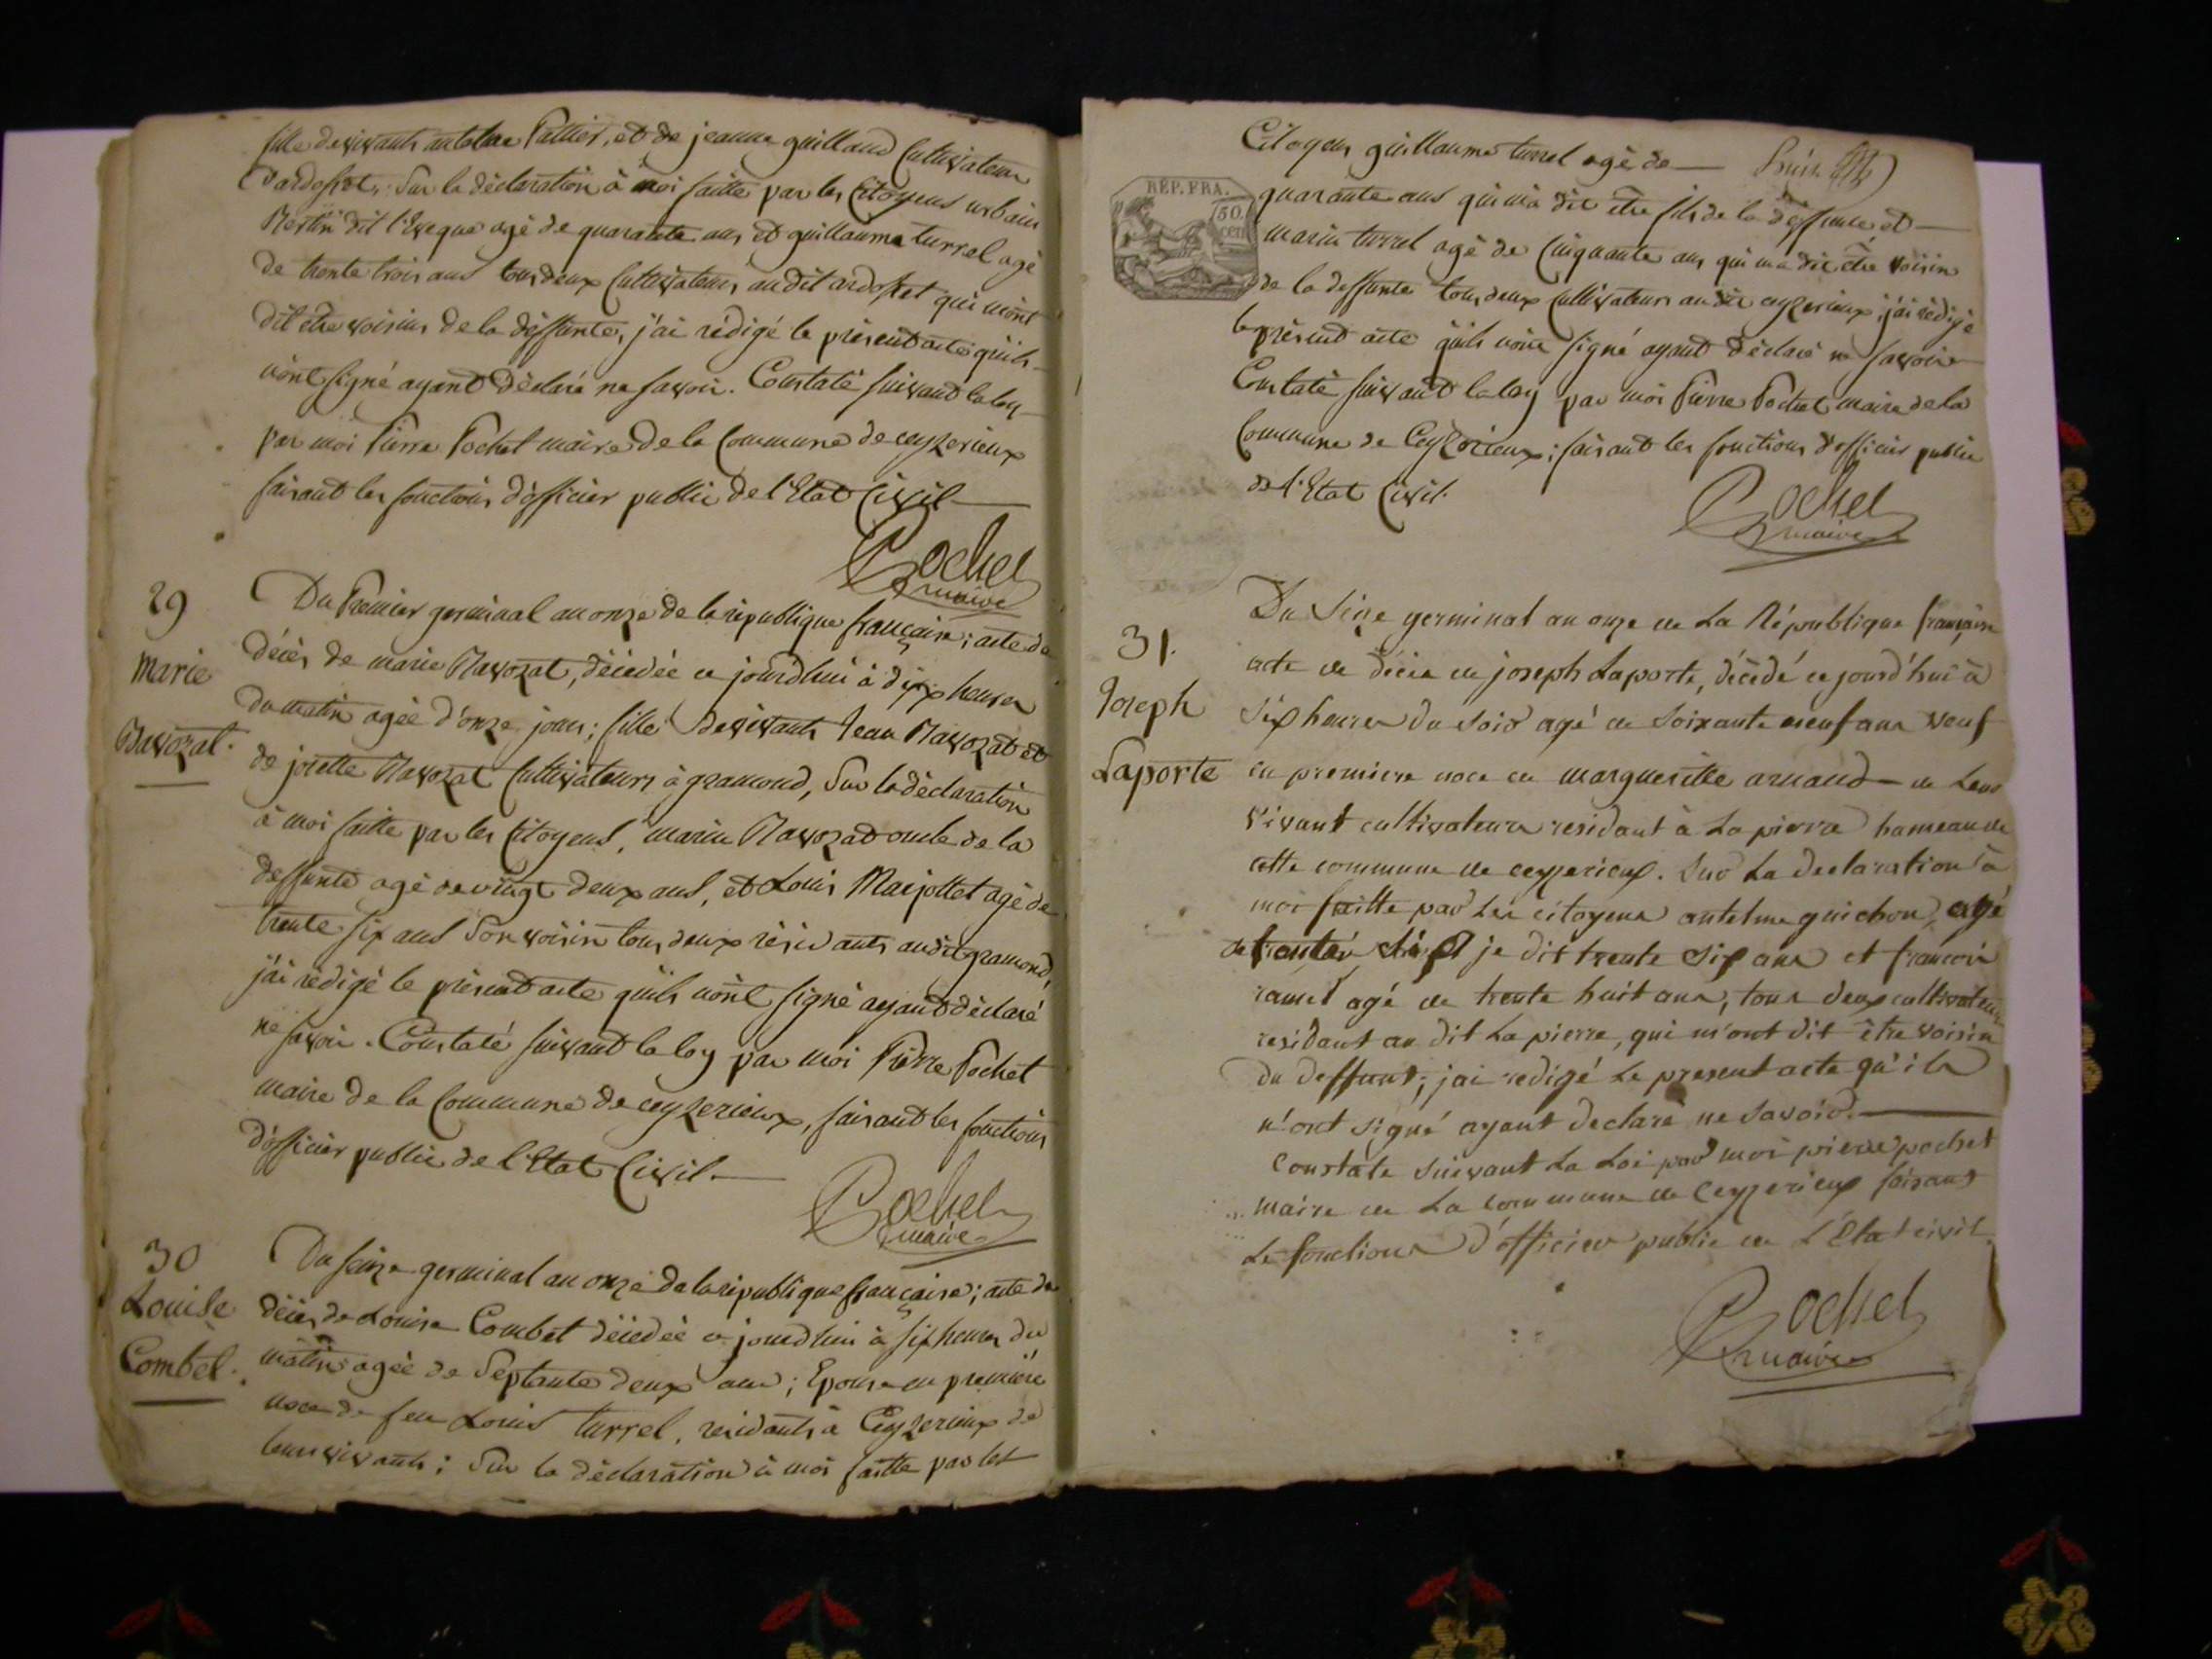 fille de vivants antelme Pallier, et de jeanne guilland Cultivateurs
d'ardosset, Sur la déclaration à moi faitte par les Citoyens urbain
Mertin dit l'Eveque agé de quarante ans et guillaume turrel agé
de trente trois ans tous deux Cultivateurs audit ardosset qui m'ont
dit être voisins de la deffunte, j'ai rédigé le présent acte qu'ils
n'ont signé ayant déclaré ne savoir. Constaté suivant la loy
par moi Pierre Pochet maire de la Commune de ceyzerieux
faisant les fonctions d'officier public de l'Etat Civil
Pochet
maire
29
Marie
Mavozat.
Du Premier germinal an onze de la république française; acte de
décès de marie Mavozat, décédée ce jourdhui à dix heures
du matin agée d'onze jours; fille de vivants Jean Mavozat et
de josette Mavozat Cultivateurs à gramond, Sur la déclaration
à moi faitte par les Citoyens, marin Mavozat oncle de la
deffunte agé de vingt deux ans, et Louis Marjollet agé de
trente six ans Son voisin tous deux résidants audit gramond,
j'ai rédigé le présent acte qu'ils n'ont signé ayant déclaré
ne savoir. Constaté suivant la loy par moi Pierre Pochet
maire de la Commune de ceyzerieux, faisant les fonctions
d'officier public de l'Etat Civil.
Pochet
maire
30
Louise
Combet.
Du seize germinal an onze de la république française; acte de
décès de Louise Combet décédée ce jourdhui à six heures du
matin agée de Septante deux ans; Epouse en premiere
noce de feu Louis turrel, residants à Ceyzerieux de
leurs vivants; Sur la déclaration à moi faitte par les
Citoyens guillaume turrel agé de
RÉP. FRA.
50
cen
quarante ans qui m'a dit être fils de la deffunte et
marin turrel agé de Cinquante ans qui m'a dit être voisin
de la deffunte tous deux Cultivateurs au dit ceyzerieux, j'ai rédigé
le présent acte qu'ils n'ont signé ayant déclaré ne savoir
Constaté suivant la loy par moi Pierre Pochet maire de la
Commune de Ceyzerieux; faisant les fonctions d'officier public
de l'Etat Civil.
Pochet
maire
31.
Joseph
Laporte
Du Seize germinal an onze de La République française
acte de décès de joseph Laporte, décédé ce jourd'hui à
Six heures du soir agé de soixante neuf ans veuf
en premiere noce de margueritte arnaud de Leur
vivant cultivateurs residant à La pierre hameau de
cette commune de ceyzerieux. Sur La declaration à
moi faitte par Les citoyens antelme guichon, agé
de je dit trente six ans et francois
ramel agé de trente huit ans, tous deux cultivateurs
residant au dit La pierre, qui m'ont dit être voisin
du deffunt; jai redigé Le present acte qu'ils
n'ont signé ayant declaré ne savoir.
Constate suivant La Loi par moi pierre pochet
maire de La commune de Ceyzerieux faisant
Le fonctions d'officier public de L'Etat civil
Pochet
maire